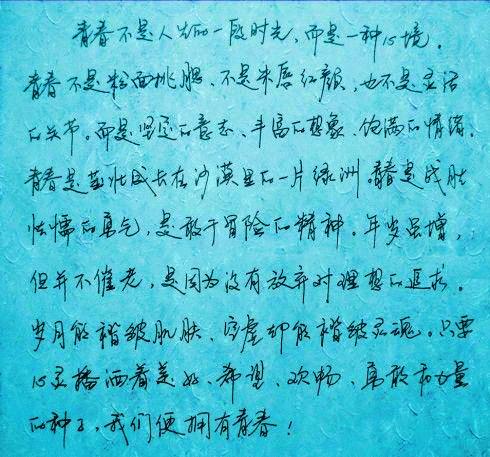 青春不是人生的一段时光，而是一种心境。
青春不是粉面桃腮、不是朱唇红颜，也不是灵活
的关节。而是坚定的意志、丰富的想象、饱满的情绪。
青春是茁壮成长在沙漠里的一片绿洲，青春是战胜
怯懦的勇气，是敢于冒险的精神。年岁虽增，
但并不催老，是因为没有放弃对理想的追求。
岁月能褶皱肌肤、空虚却能褶皱灵魂。只要
心灵播洒着美好、希望、欢畅、勇敢和力量
的种子，我们便拥有青春！